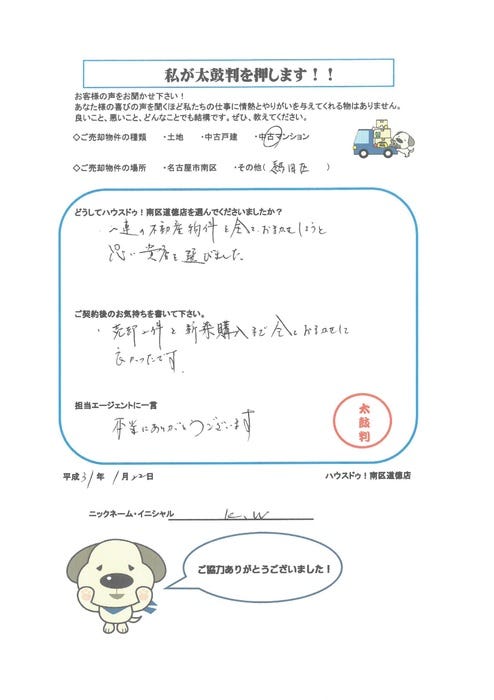 私が太鼓判を押します！！
お客様の声をお聞かせ下さい！
あなた様の喜びの声を聞くほど私たちの仕事に情熱とやりがいを与えてくれる物はありません。
良いこと、悪いこと、どんなことでも結構です。ぜひ、教えてください。
◇ご売却物件の種類　・土地　・中古戸建　・中古マンション
◇ご売却物件の場所　・名古屋市南区　・その他（ 緑区 ）
どうしてハウスドゥ！南区道徳店を選んでくださいましたか？
・一連の不動産物件を全ておまかせしようと
思い貴店を選びました。
ご契約後のお気持ちを書いて下さい。
・売却一件と新築購入まで全ておまかせして
良かったです。
担当エージェントに一言
本当にありがとうございます
太鼓判
平成31年 1月22日　ハウスドゥ！南区道徳店
ニックネーム・イニシャル K.W
ご協力ありがとうございました！